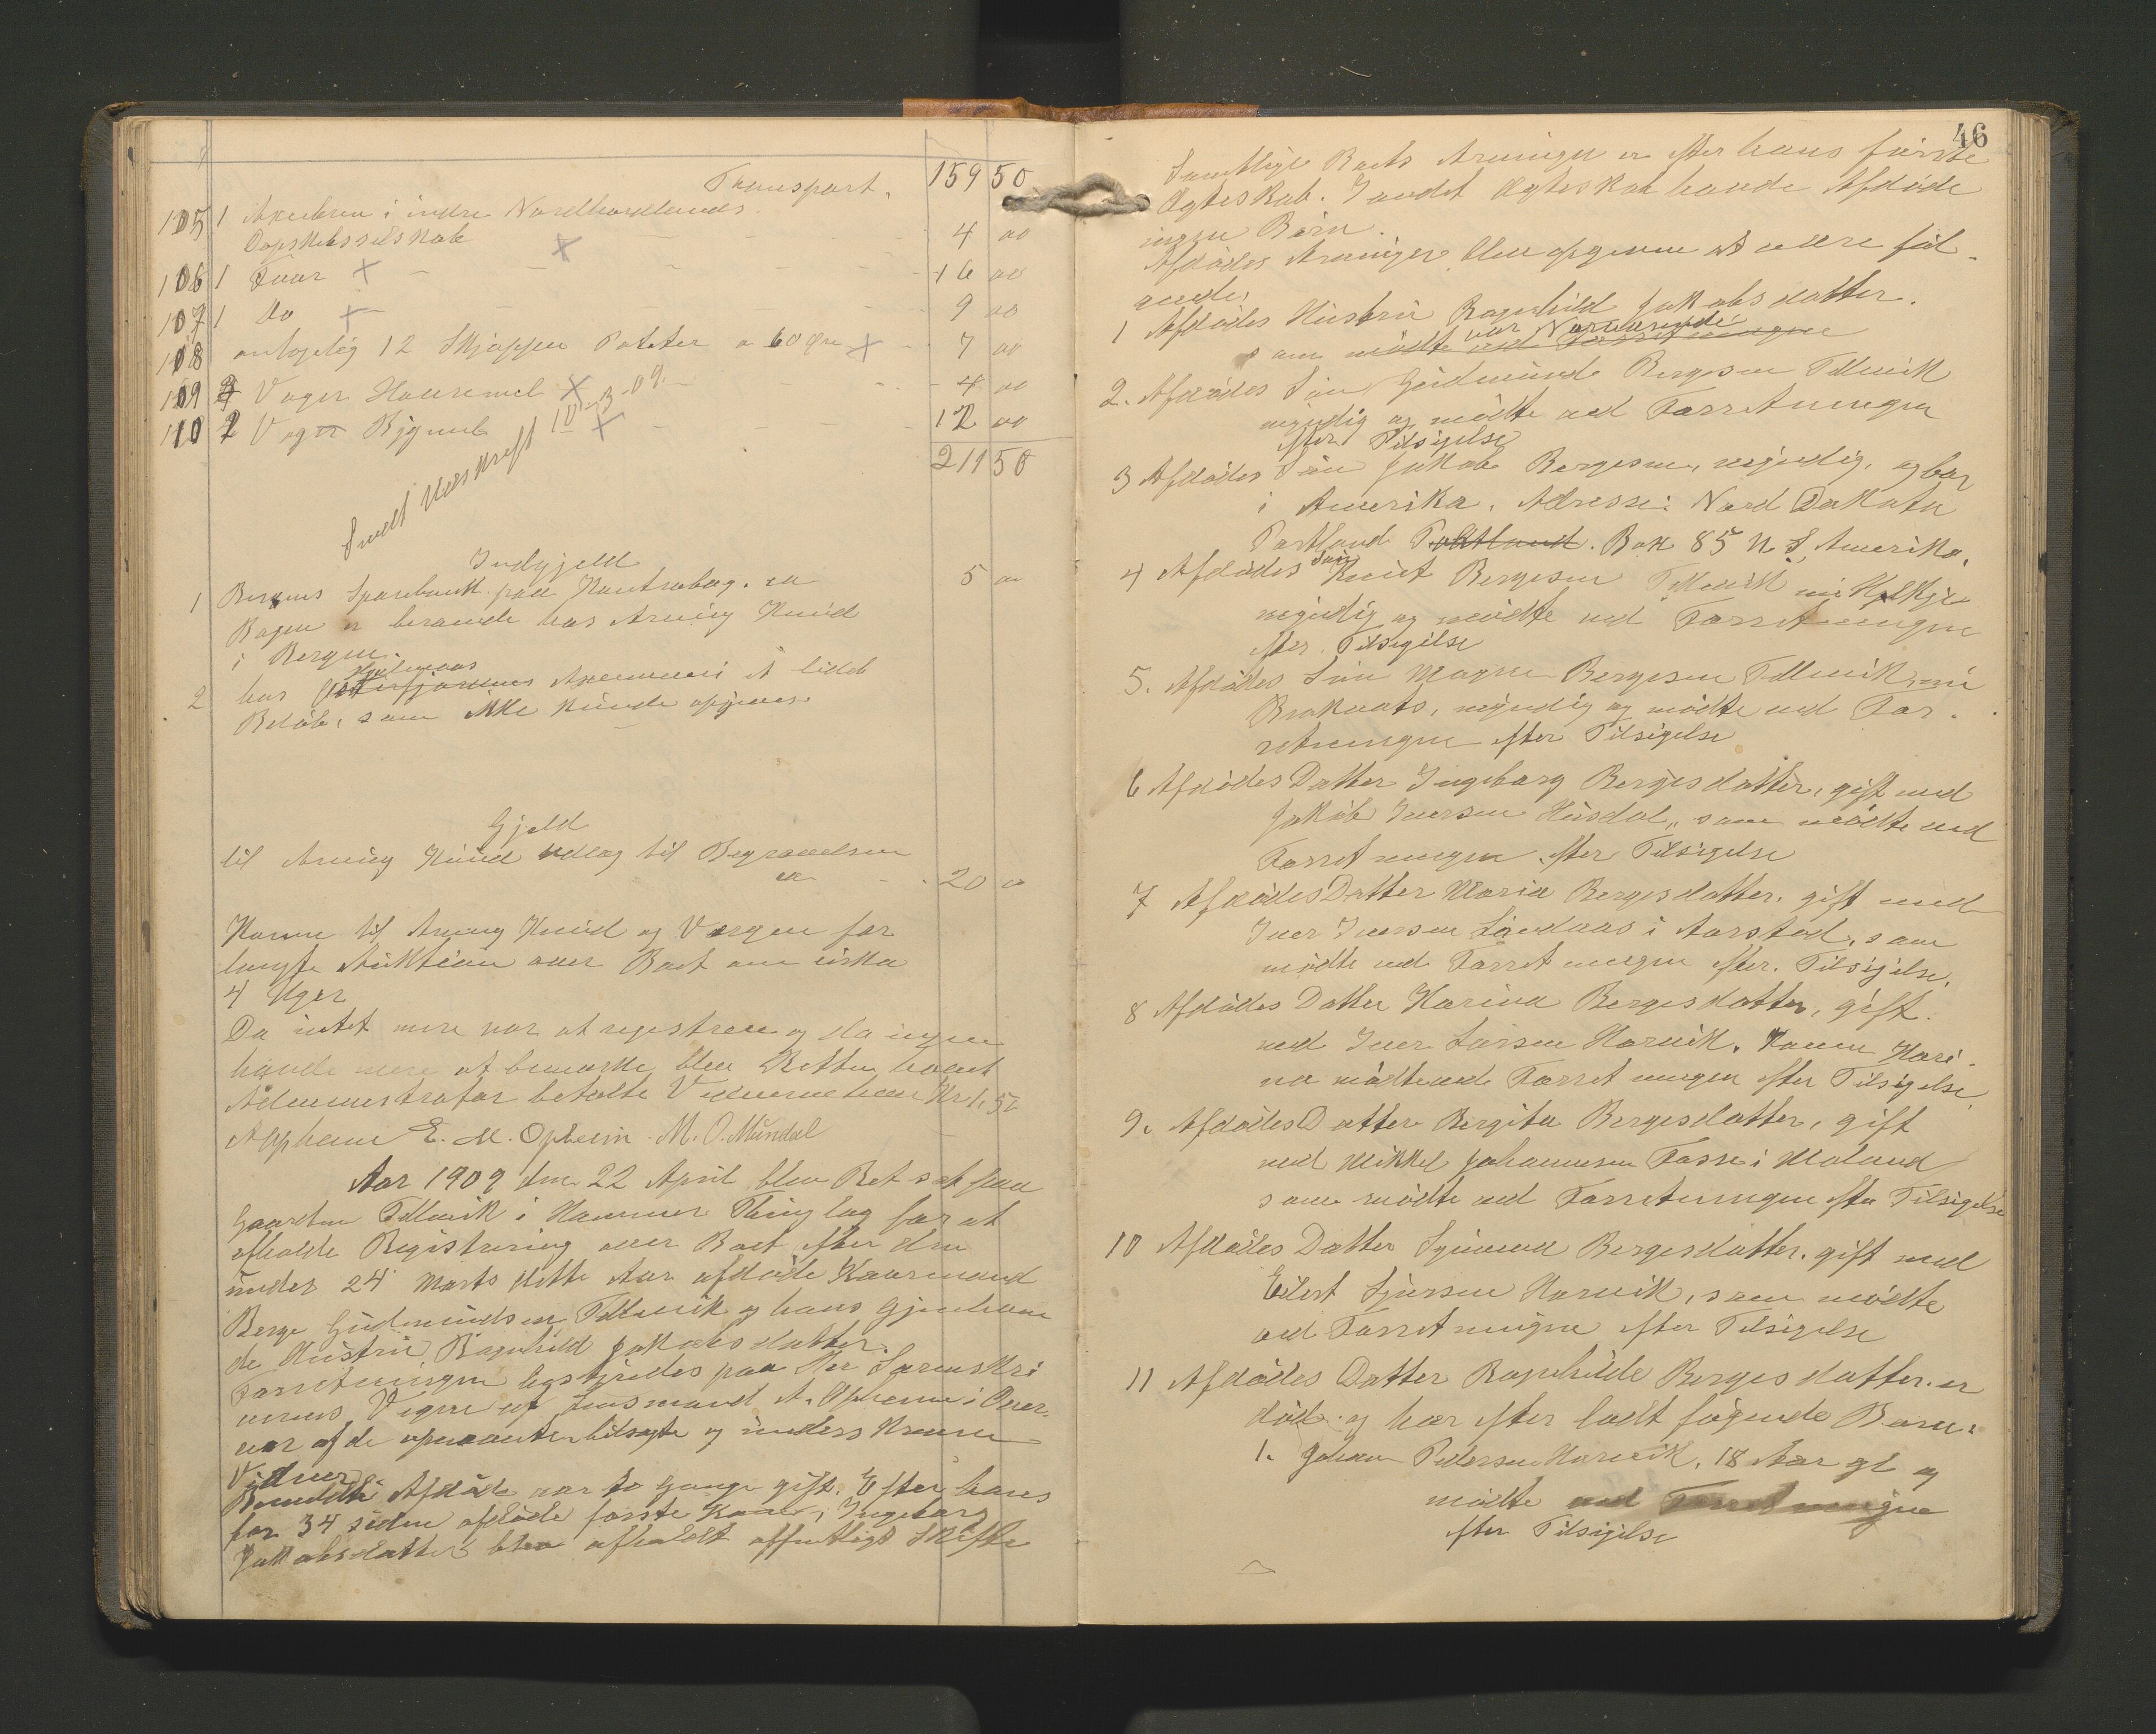 Transport. 159 50
105 1 Akie i indre Nordhordlands
Dapskibsselskab 4 00
106 1 Faar 16 00
107 1 Do 9 00
108 antagelig 12 Skjepper Poteter a 60 Øre 7 00
109 2 Voger Havremel 4 00
110 2 Voger Bygmel 12 00
211 50
Sendt Udskrift 10-3-09.
Indgjeld
1 Bergens Sparebank paa Kontrabog. ca 5 00
Bogen er beroende hos Arving Knud
i Bergen.
2 hos Meieri et lidet
Beløb, som ikke kunde opgives.
Gjeld
til Arving Knud Udlæg til Begravelsen
ca 20 00
Konen til Arving Knud og Værgen for
langte Auktion over Boet om cirka
4 Uger
Da intet mere var at registrere og da ingen
havde mere at bemærke blev Retten hævet
Administrator betalte Vidnerne hver Kr 1,50
A Opheim E. M. Opheim. M. O. Mundal
Aar 1909 den 22 April blev Ret sat paa
Gaarden Tellevik i Hammer Thinglag for at
afholde Registrering over Boet efter den
under 24 Marts dette Aar afdøde Kaarmand
Berge Gudmundsen Tellevik og hans gjenleven
de Hustru Ragnhild Jakobsdatter.
Forretningen bestyredes paa Hr Sorenskri
verens Vegne af Lensmand A. Opheim i Over
vær af de opnævnte tilsagte og underskrevne
Vidner
Afdøde var to Gange gift. Efter hans
for 34 siden afdøde første Kone, Ingeborg
Jakobsdatter blev afholdt offentligt Skifte
46
Samtlige Boets Arvinger er efter hans første
Ægteskab. I andet Ægteskab havde Afdøde
ingen Børn.
Afdødes Arvinger blev opgivne at være føl-
gende,
1 Afdødes Hustru Ragnhild Jakobsdatter.
som mødte ved Forretningen var Nærværende
2. Afdødes Søn Gudmund Bergesen Tellevik
myndig og mødte ved Forretningen
efter Tilsigelse
3 Afdødes Søn Jakob Bergesen, myndig, og bor
i Amerika. Adresse: Nord Dakota
Portland Portland. Box 85 N S, Amerika.
4 Afdødes Søn Knut Bergesen Tellevik nu Helkje
myndig og mødte ved Forretningen
efter Tilsigelse
5. Afdødes Søn Magne Bergesen Tellevik, nu
myndig og mødte ved For-
retningen efter Tilsigelse
6 Afdødes Datter Ingeborg Bergesdatter, gift med
Jakob Iversen Husdal, som mødte ved
Forretningen efter Tilsigelse
7 Afdødes Datter Maria Bergesdatter. gift med
Iver Iversen Landaas i Aarstad, som
mødte ved Forretningen efter. Tilsigelse.
8 Afdødes Datter Karina Bergesdatter, gift.
med Iver Larsen Hornvik. Konen Kari-
na mødte ved Forretningen efter Tilsigelse.
9. Afdødes Datter Bergita Bergesdatter, gift
med Mikkel Johannesen Fosse i Meland
som mødte ved Forretningen efter Tilsigelse
10 Afdødes Datter Synneva Bergesdatter. gift med
Eilert Sjursen Hornvik, som mødte
ved Forretningen efter Tilsigelse
11 Afdødes Datter Ragnhilde Bergesdatter. er
død. og har efter ladt følgende Børn:
1. Johan Pedersen Hornvik, 18 Aar gl og
mødte ved Forretningen
efter Tilsigelse